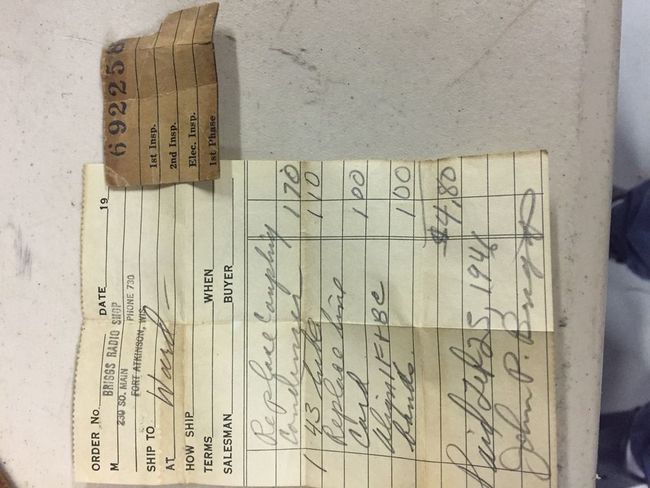 692258
1st Insp.
2nd Insp.
Elec. Insp.
1st Phase
ORDER No. DATE 19
M BRIGGS RADIO SHOP
230 SO. MAIN PHONE 730
SHIP TO FORT ATKINSON, WIS.
AT Ward
HOW SHIP
TERMS WHEN
SALESMAN BUYER
Replace Coupling
Condenser 1 70
1 43 tube 1 10
Replace line
Cord 1 00
Align IF + BC
bands. 1 00
$4.80
Paid Feb 25, 1946
John P.